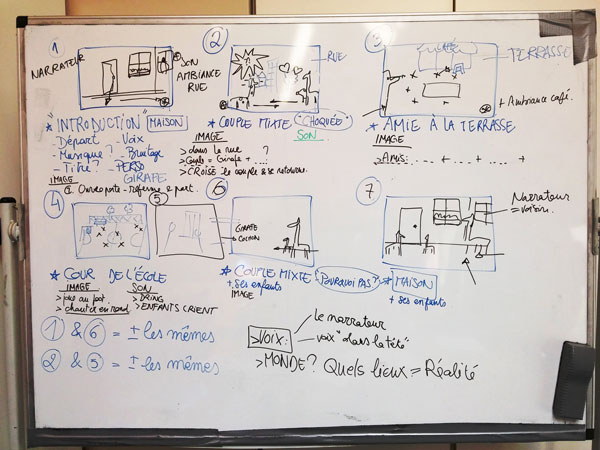 1
NARRATEUR
SON
AMBIANCE
RUE
* "INTRODUCTION" MAISON
- Départ - Voix
- Musique? - Bruitage
- Titre? - PERSO
GIRAFE
IMAGE
2
RUE
* COUPLE MIXTE "CHOQUÉE"
IMAGE
SON
> dans la rue ?
> Couple = Girafe + ....
> CROISE le couple & se retourne.
3
CAFÉ
TERRASSE
+ Ambiance café.
* AMIE À LA TERRASSE
IMAGE
> Amis: ... + ... + ... + ...
4
* COUR DE L'ÉCOLE
IMAGE
SON
> DRING
> ENFANTS CRIENT
5
6
GIRAFE
COCHON
* COUPLE MIXTE "POURQUOI PAS"
+ ses enfants
IMAGE
7
Narrateur
= voisin.
* MAISON
+ ses enfants
1 & 6 = ± les mêmes
2 & 5 = ± les mêmes
> VOIX:
le narrateur
voix "dans la tête"
> MONDE? Quels lieux = Réalité